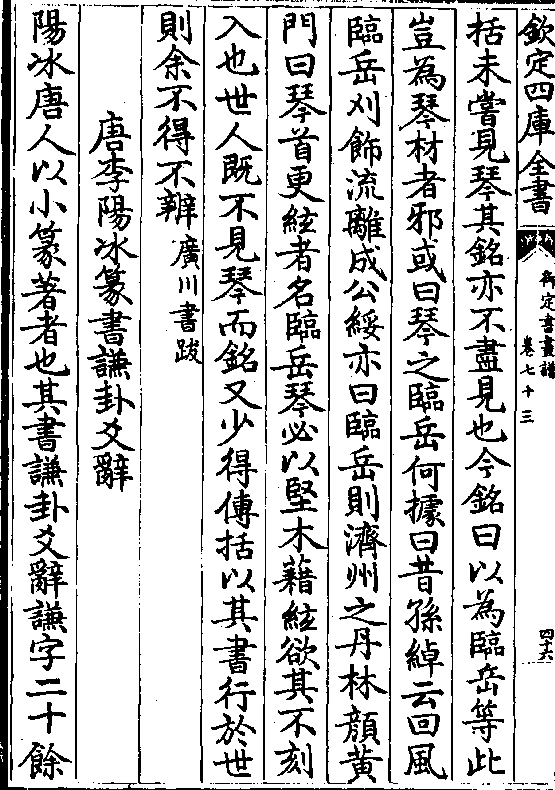 欽定四庫全書
御定書畫譜
卷七十三
四十六
括未嘗見琴其銘亦不盡見也今銘曰以為臨岳等此
豈為琴材者邪或曰琴之臨岳何據曰昔孫綽云回風
臨岳刋飾流離成公綏亦曰臨岳則濟州之丹林顔黄
門曰琴首更絃者名臨岳琴必以堅木藉絃欲其不刻
入也世人既不見琴而銘又少得傳括以其書行於世
則余不得不辨廣川書跋
唐李陽冰篆書謙卦爻辭
陽冰唐人以小篆著者也其書謙卦爻辭謙字二十餘